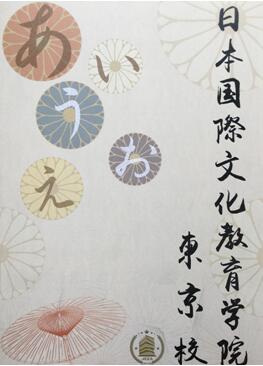 日本国際文化教育学院
東京校
あ
い
う
お
え